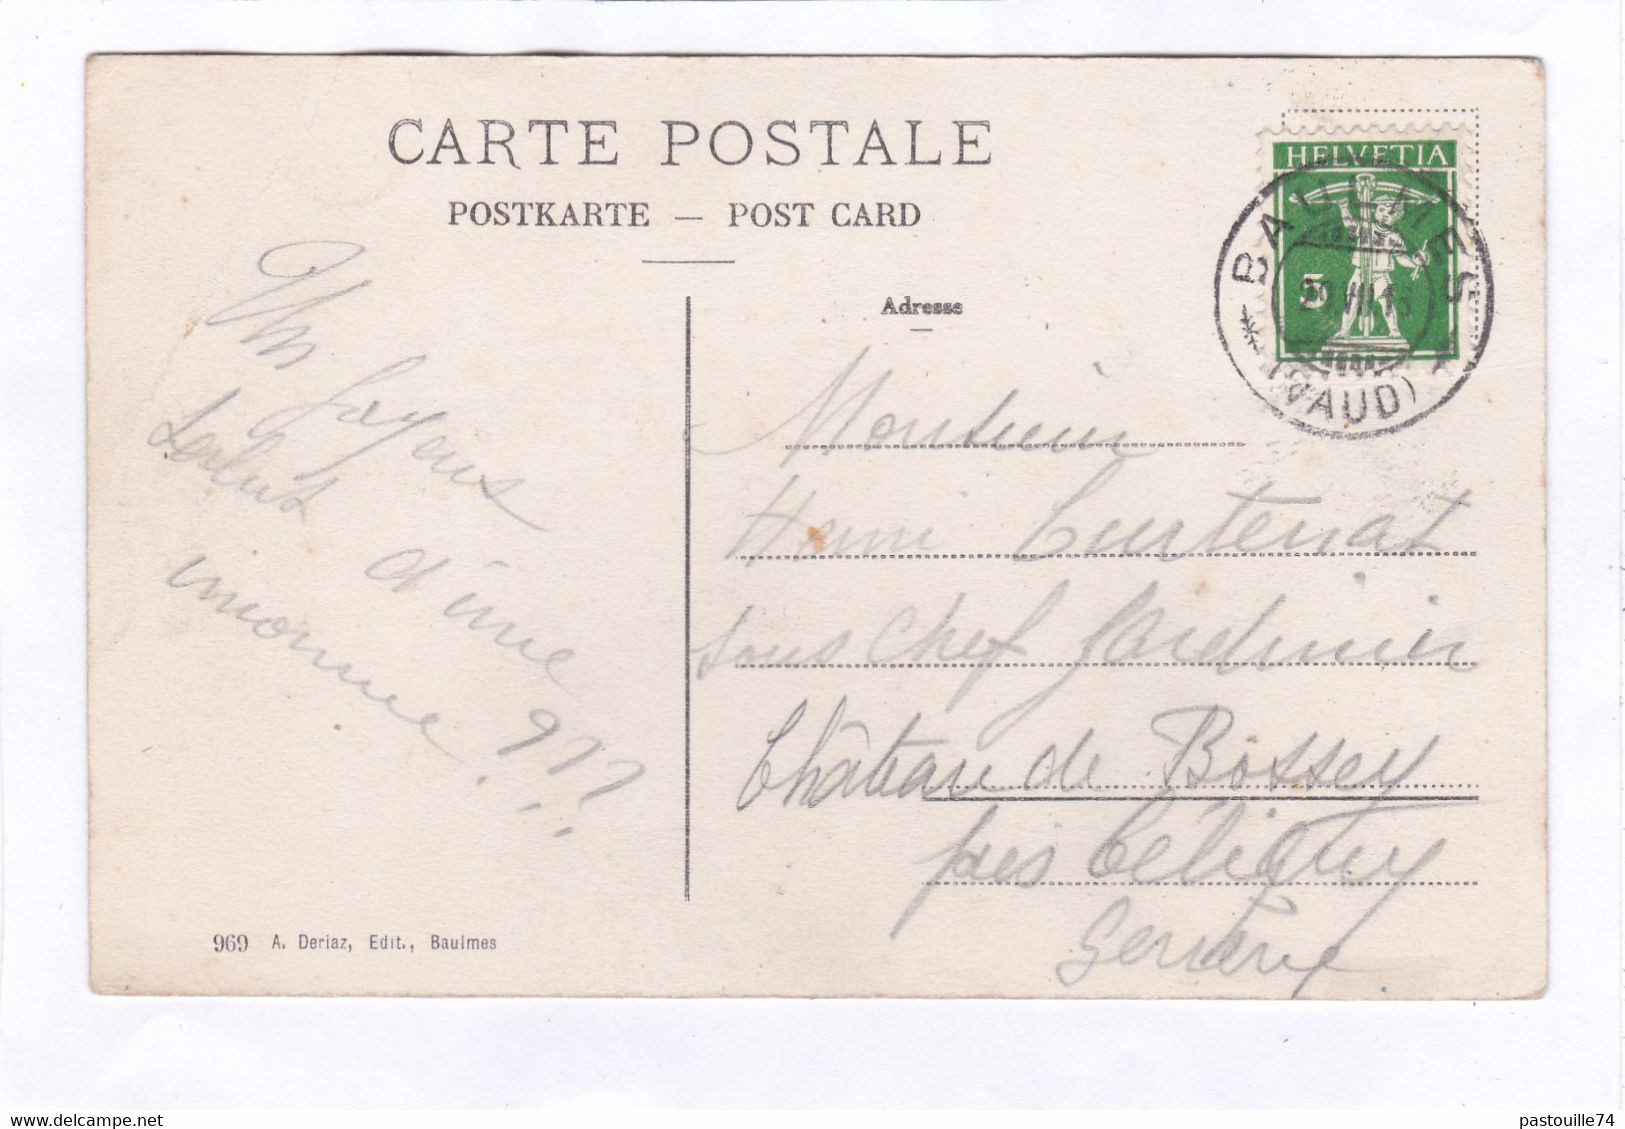 CARTE POSTALE
POSTKARTE — POST CARD
HELVETIA
5
BAULMES
(VAUD)
Adresse
Un joyeux
Salut
d'une
mionne ???
Monsieur
Henri Curtenat
Sous Chef Jardinier
Château de Bossey
près Céligny
Genève
969 A. Deriaz, Edit., Baulmes
pastouille74